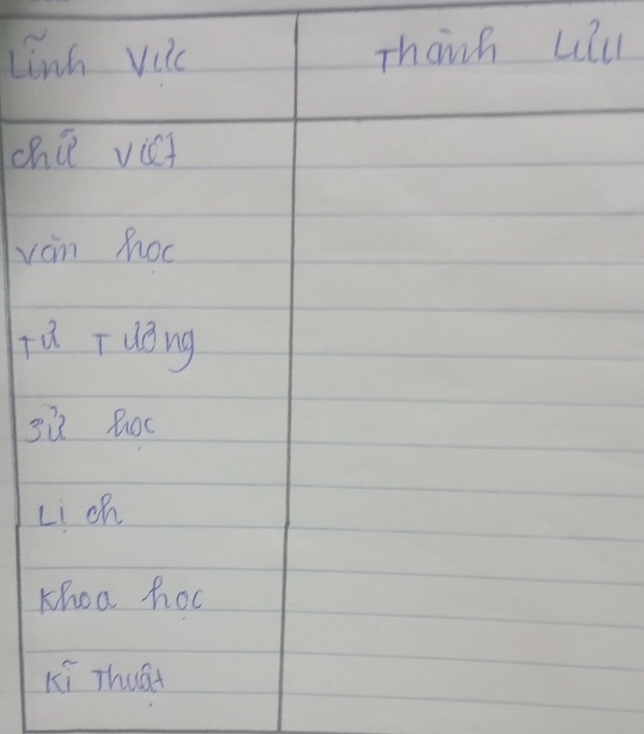 Lĩnh Vực Thành Lựu
chữ viết
văn học
Tư Tưởng
sử học
Lịch
Khoa học
Kĩ Thuật